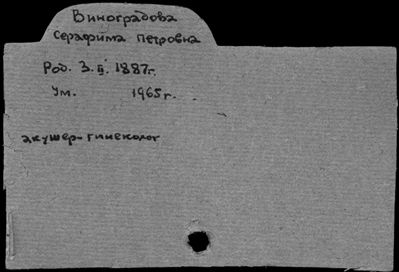 Виноградова
Серафима Петровна
Род. 3.II.1887г.
Ум. 1965г.
акушер-гинеколог